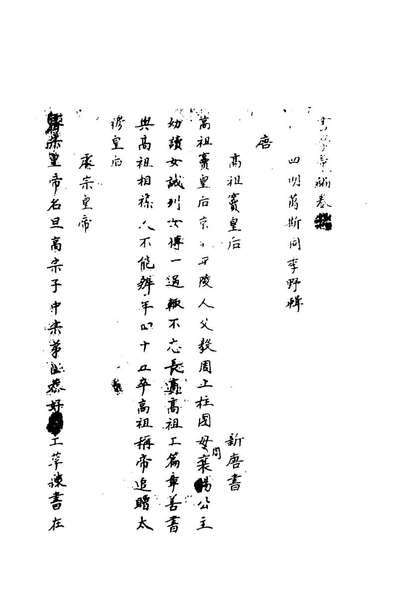 書學彙編卷
四明萬斯同季野輯
唐
高祖竇皇后 新唐書
高祖竇皇后京兆平陵人父毅周上柱國母周襄陽公主
幼讀女誡列女傳一過輒不忘長適高祖工篇章善書
與高祖相雜人不能辨年四十五卒高祖稱帝追贈太
穆皇后
睿宗皇帝
睿宗皇帝名旦高宗子中宗弟恭好工草隸書在